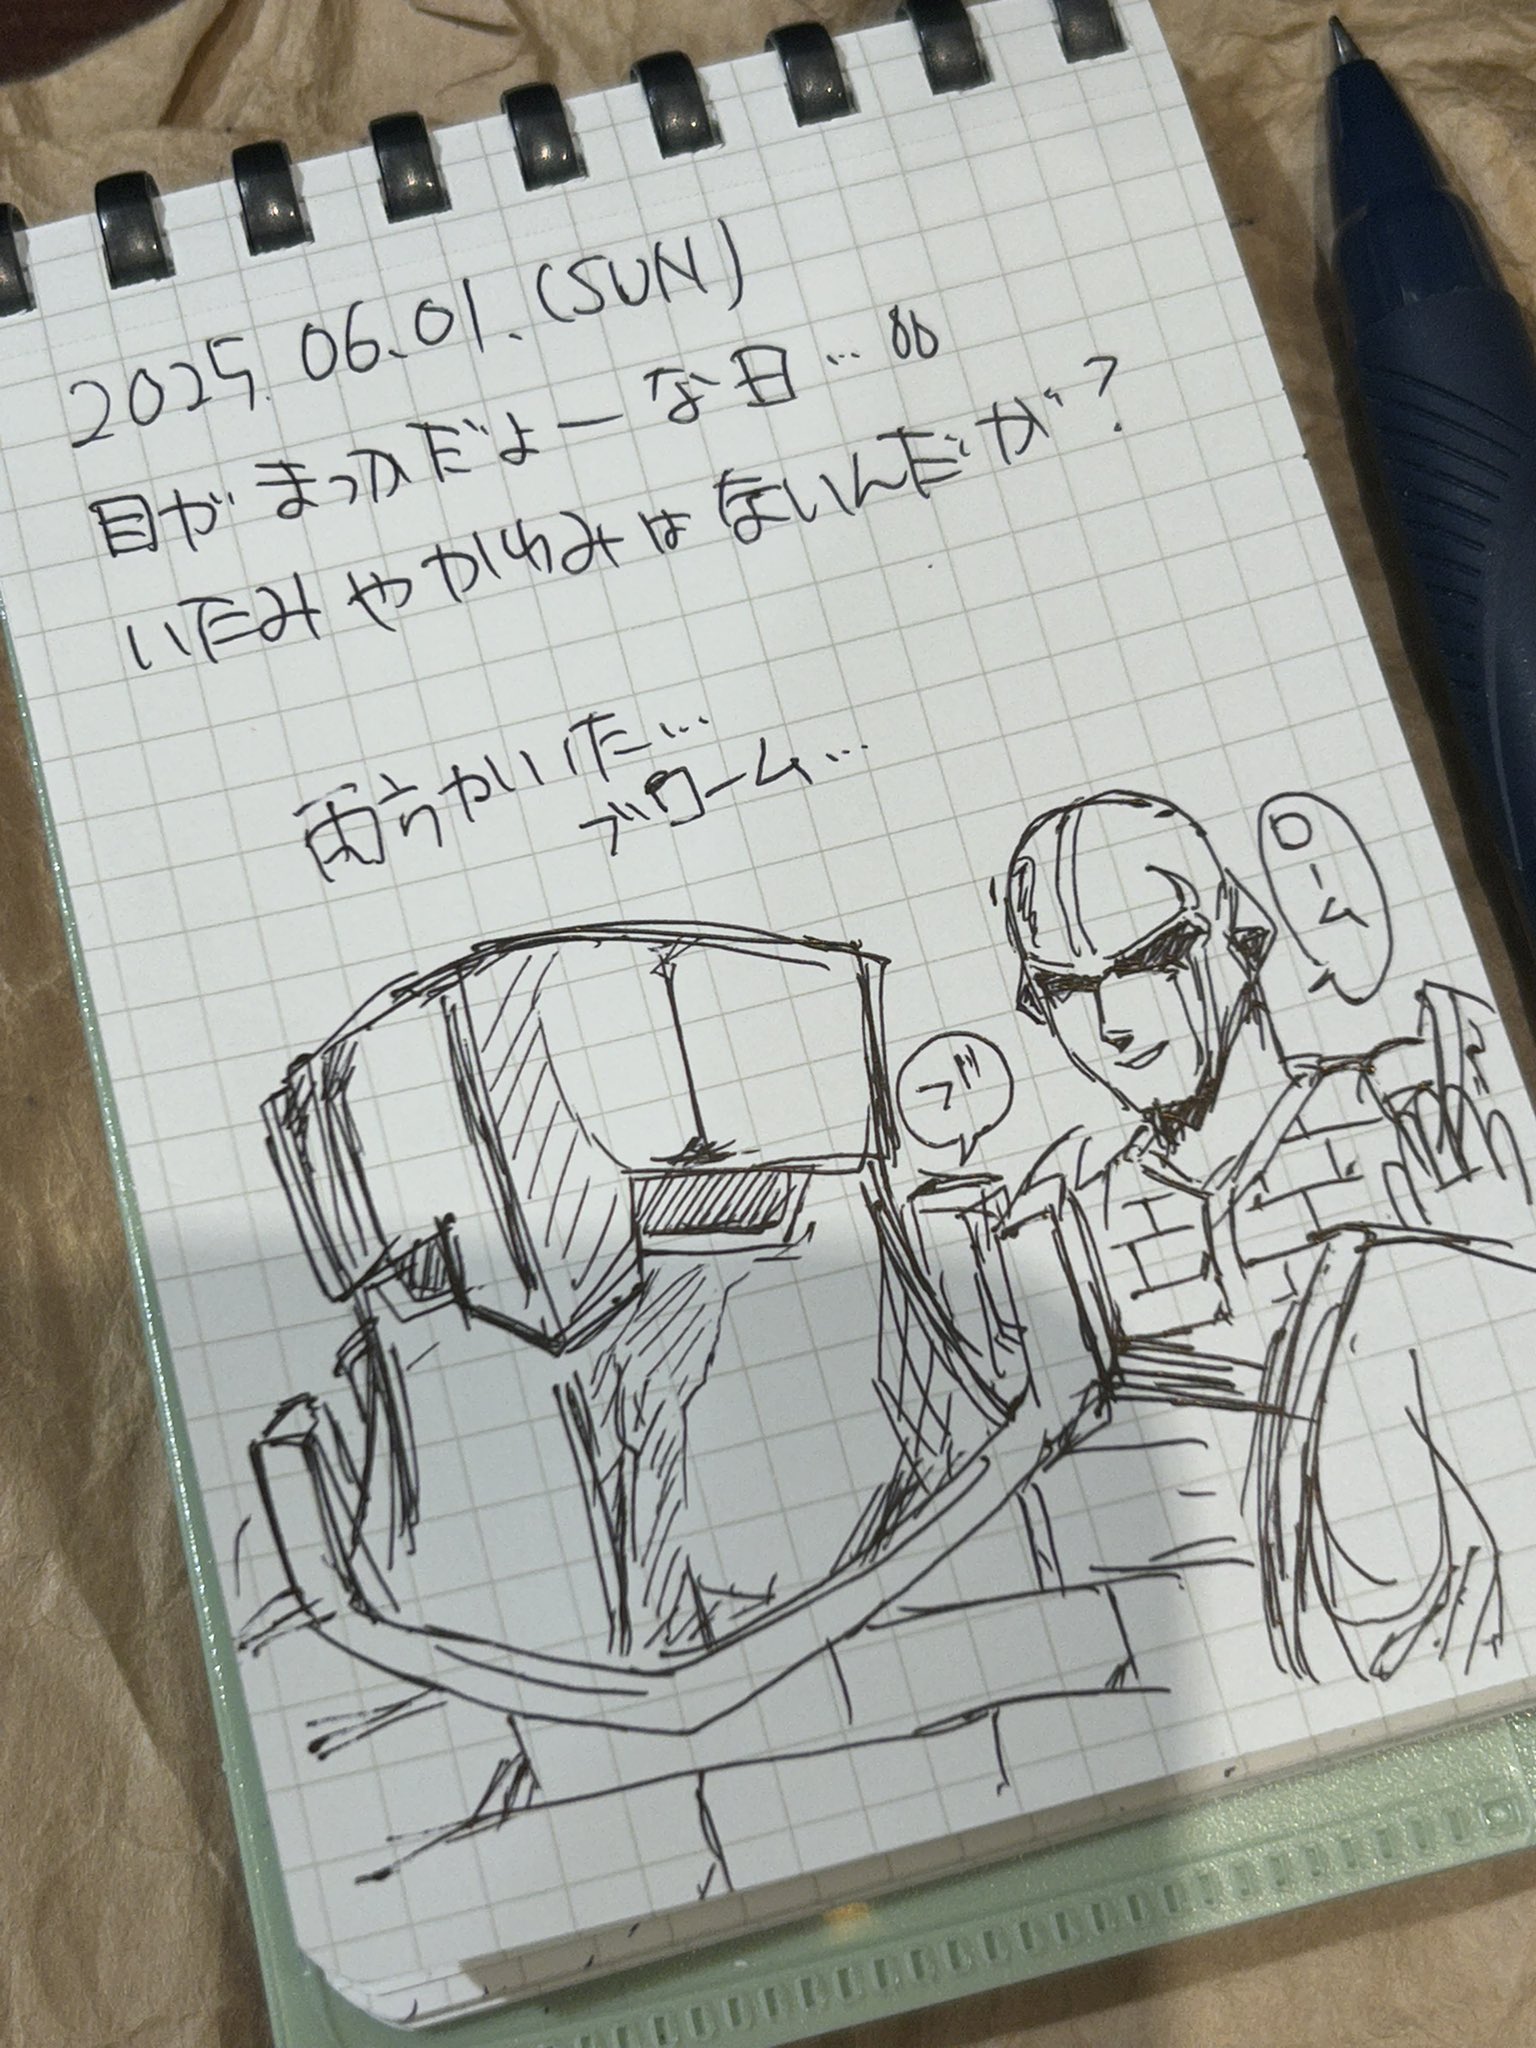 2025.06.01.(SUN)
目がまっかだよーな日…
いたみやかゆみはないんだが?
両方かいた…
ブローム…
ブ
ローム